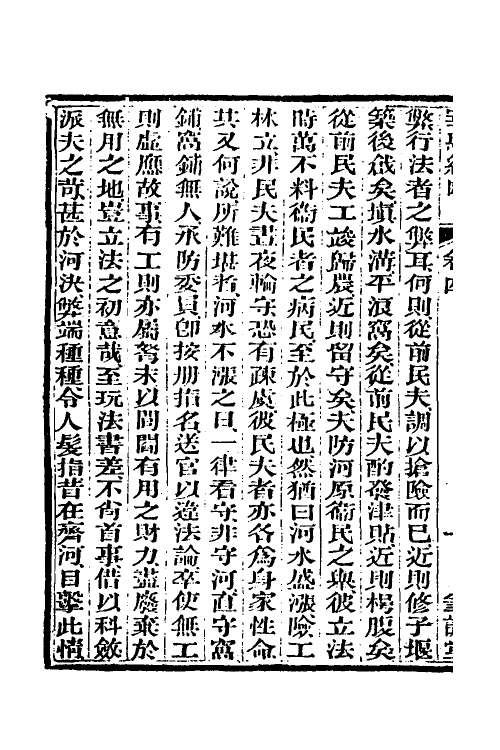 卷四
弊行法者之弊耳何則從前民夫調以搶險而已近則修子堰
築後戧矣塡水溝平浪窩矣從前民夫酌發津貼近則枵腹矣
從前民夫工竣歸農近則留守矣夫防河原衞民之舉彼立法
時萬不料衞民者之病民至於此極也然猶曰河水盛漲險工
林立非民夫晝夜輪守恐有疎虞彼民夫者亦各爲身家性命
其又何說所難堪者河水不漲之日一律看守非守河直守窩
鋪窩鋪無人承防委員卽按册指名送官以違法論卒使無工
則虛應故事有工則亦屬弩末以閭閻有用之財力盡廢棄於
無用之地豈立法之初意哉至玩法書差不肖首事借以科斂
派夫之苛甚於河決弊端種種令人髮指昔在齊河目擊此情